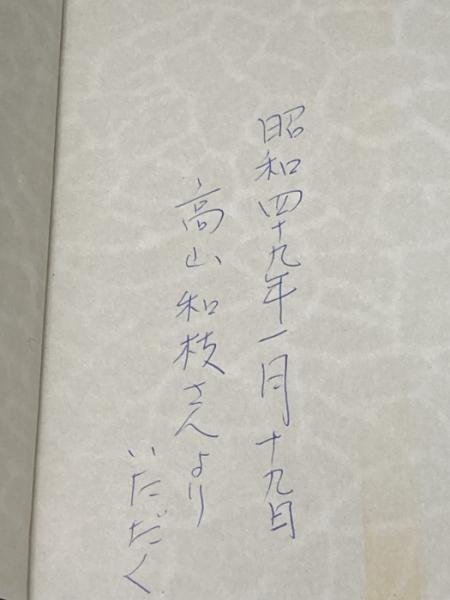 昭和四十九年一月十九日
高山和枝さんより
いただく